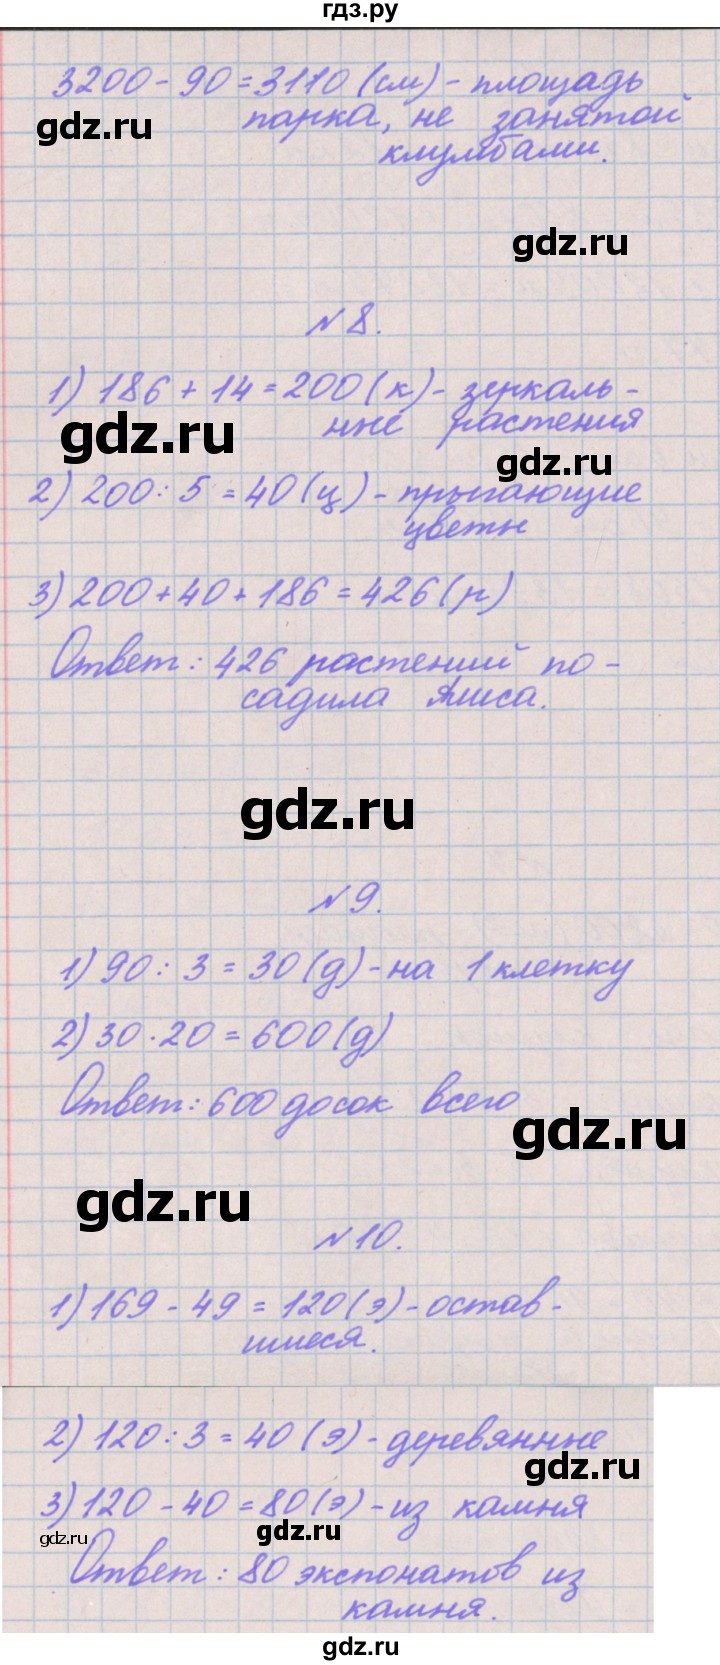 гдз.ру
3200 - 90 = 3110 (см) - площадь
парка, не занятой
gdz.ru
клумбами.
gdz.ru
№8.
1) 186 + 14 = 200 (к) - зеркаль-
ные растения
gdz.ru
gdz.ru
2) 200 : 5 = 40 (ц) - прыгающие
цветы
3) 200 + 40 + 186 = 426 (р)
Ответ: 426 растений по-
садила Алиса.
gdz.ru
№9.
1) 90 : 3 = 30 (д) - на 1 клетку
2) 30 · 20 = 600 (д)
Ответ: 600 досок всего
gdz.ru
gdz.ru
№10.
1) 169 - 49 = 120 (э) - остав-
шиеся.
2) 120 : 3 = 40 (э) - деревянные
gdz.ru
3) 120 - 40 = 80 (э) - из камня
gdz.ru
gdz.ru
Ответ: 80 экспонатов из
камня.
gdz.ru